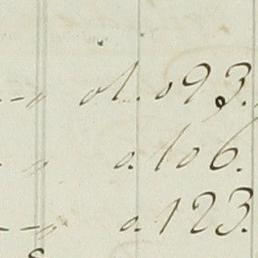 –„ d. 093.
„ a. 106.
–„ a. 123.